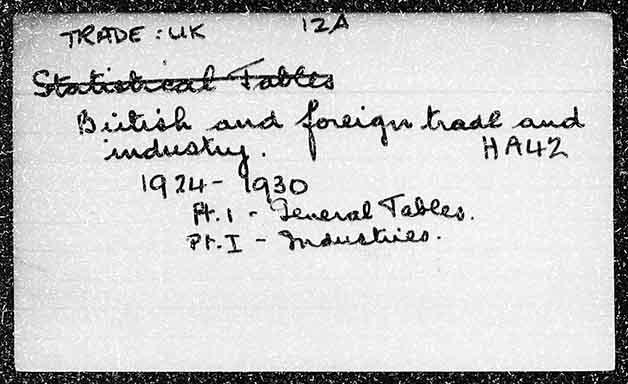 TRADE: UK 12A
Statistical Tables
British and foreign trade and
industry. HA42
1924-1930
Pt. 1 - General Tables.
Pt. I - Industries.